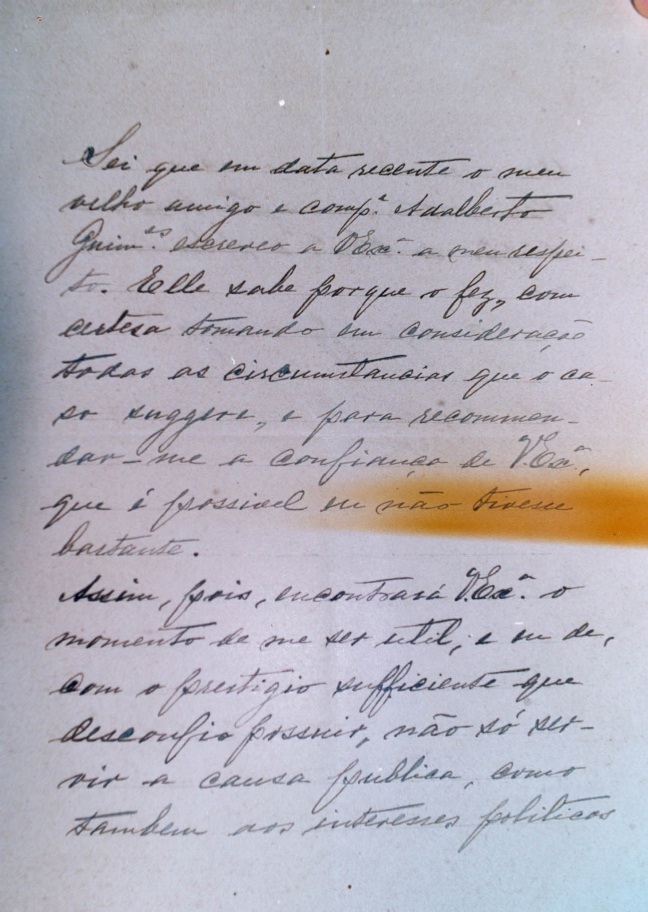 Sei que em data recente o meu
velho amigo e comp.ᵉ Adalberto
Guim.ᵉˢ escreveo a V.Exᵃ. a meu respei-
to. Elle sabe porque o fez, com
certesa tomando em consideração
todas as circumstancias que o ca-
so suggere, e para recommen-
dar-me a confiança de V.Exᵃ,
que é possivel eu não tivesse
bastante.
Assim, pois, encontrará V.Exᵃ. o
momento de me ser util, e eu de,
com o prestigio sufficiente que
desconfio possuir, não só ser-
vir a causa publica, como
tambem aos interesses politicos